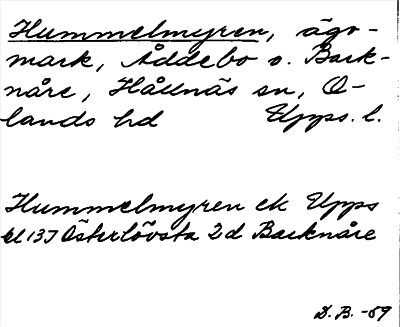 Hummelmyren, ägo-
mark, Åddebo o. Back-
nåre, Hållnäs sn, O-
lands hd Upps. l.
Hummelmyren ek Upps
bl 137 Österlövsta 2d Backnåre
D. B. -59